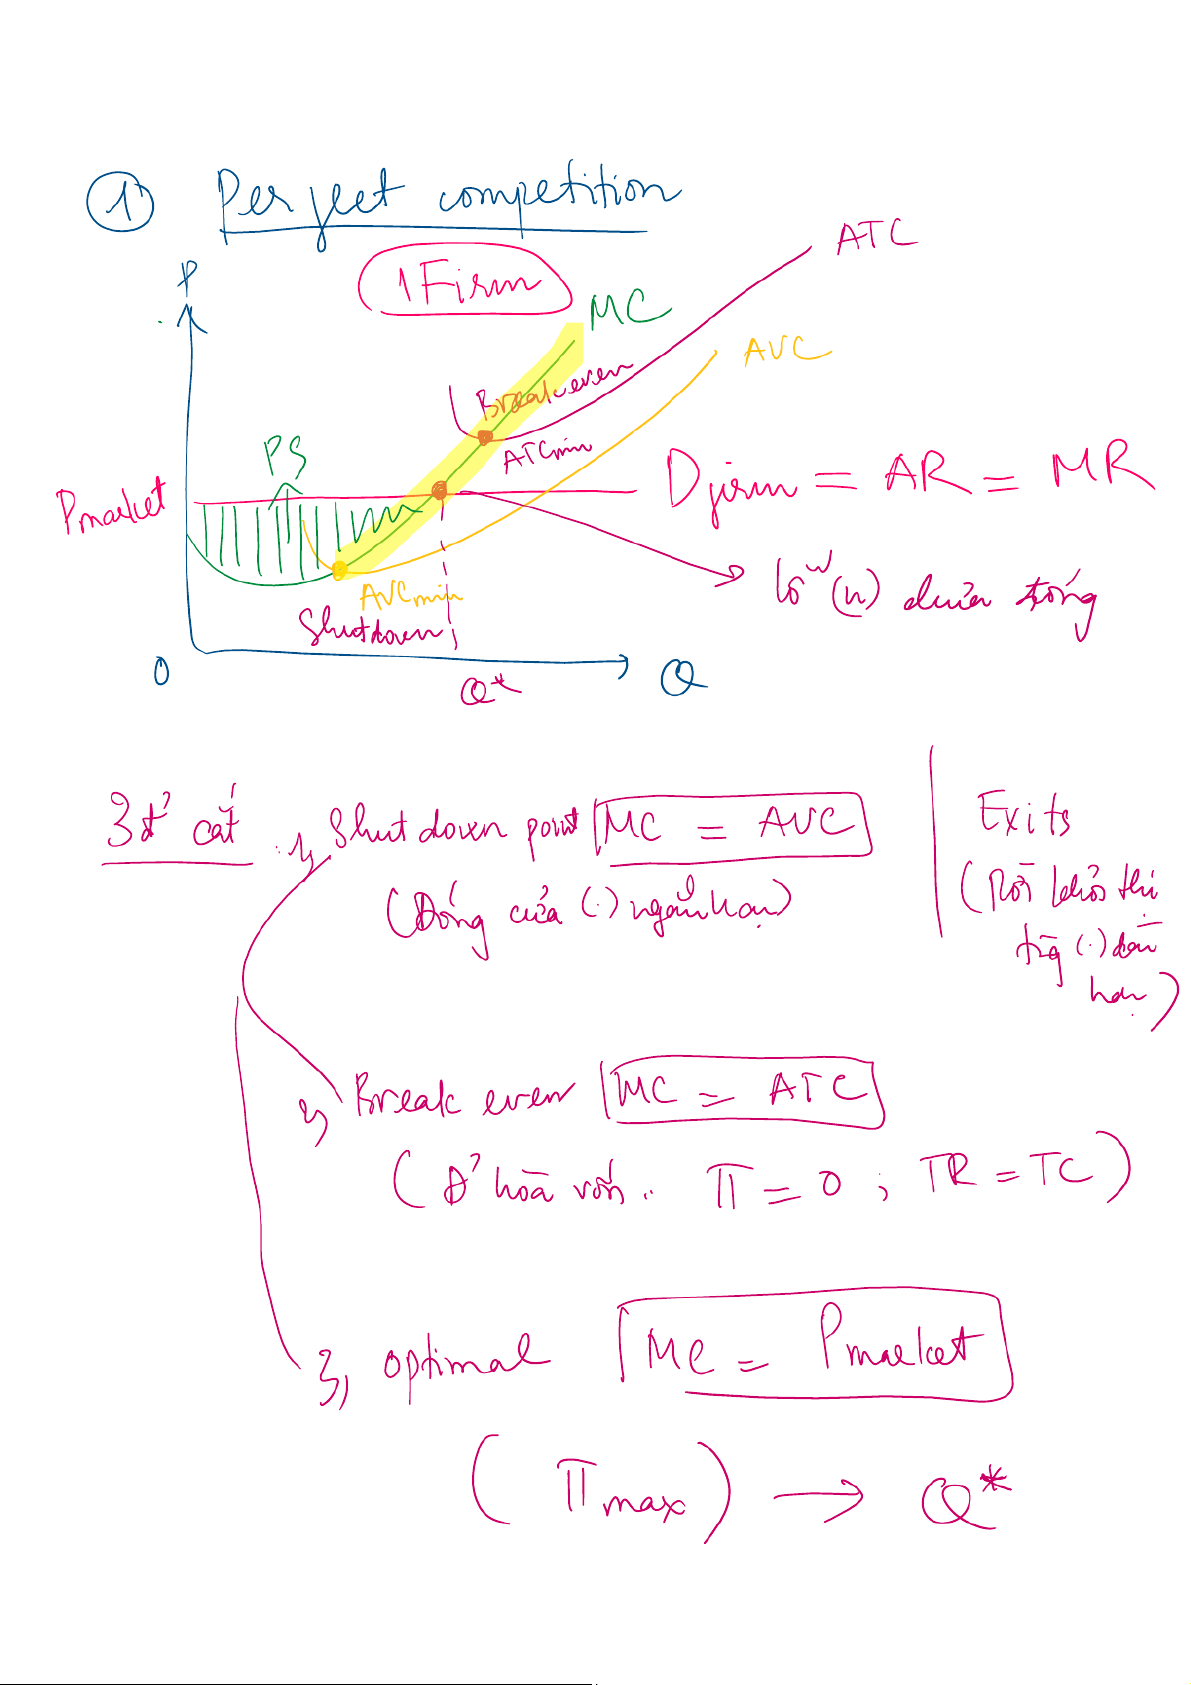 ① Perfect competition
1 Firm
P
ATC
MC
AVC
Break even
ATCmin
PS
Pmarket
Dfirm = AR = MR
AVCmin
Shutdown
lỗ (n) chưa đóng
0
Q*
Q
3 đ' cắt
1, Shut down point MC = AVC
(Đóng cửa (.) ngắn hạn)
Exits
(Rời khỏi thị
trg (.) dài
hạn)
2, Break even MC = ATC
(Đ' hòa vốn. π = 0 ; TR = TC)
3, optimal MC = Pmarket
(πmax) → Q*